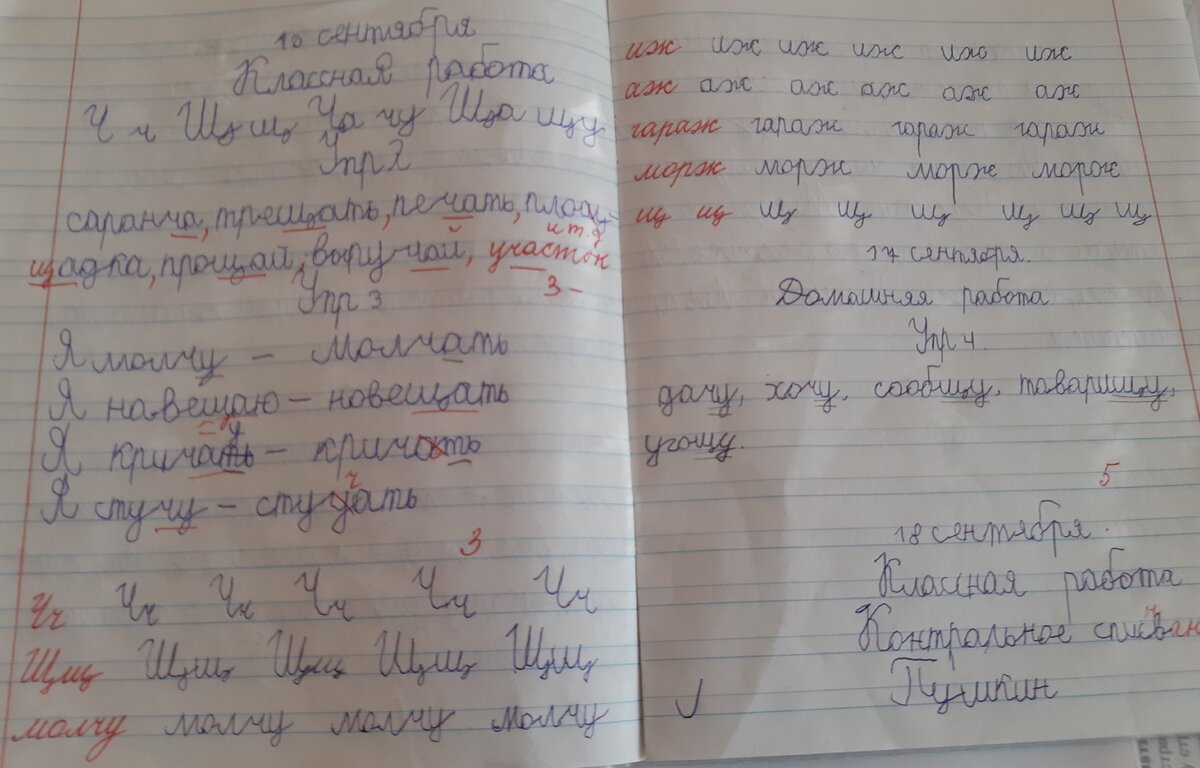 10 сентября
Классная работа
Ч ч Щщ Ча чу Ща щу
Упр 2
саранча, трещать, печать, площ-
щадка, прощай, выручай, участок
и т.д
3-
Упр 3
Я молчу – молчать
Я навещаю – новещать
у
Я кричать – кричать
ч
Я стучу – стучать
3
Чч Чч Чч Чч Чч Чч
Щщ Щщ Щщ Щщ Щщ
молчу молчу молчу молчу
иж иж иж иж иж иж
аж аж аж аж аж аж
гараж гараж гараж гараж
морж морж морж морж
щ щ щ щ щ щ щ щ
17 сентября.
Домашняя работа
Упр 4.
дачу, хочу, сообщу, товарищу,
угощу.
5
18 сентября.
Классная работа
Контрольное списыван
Пушкин